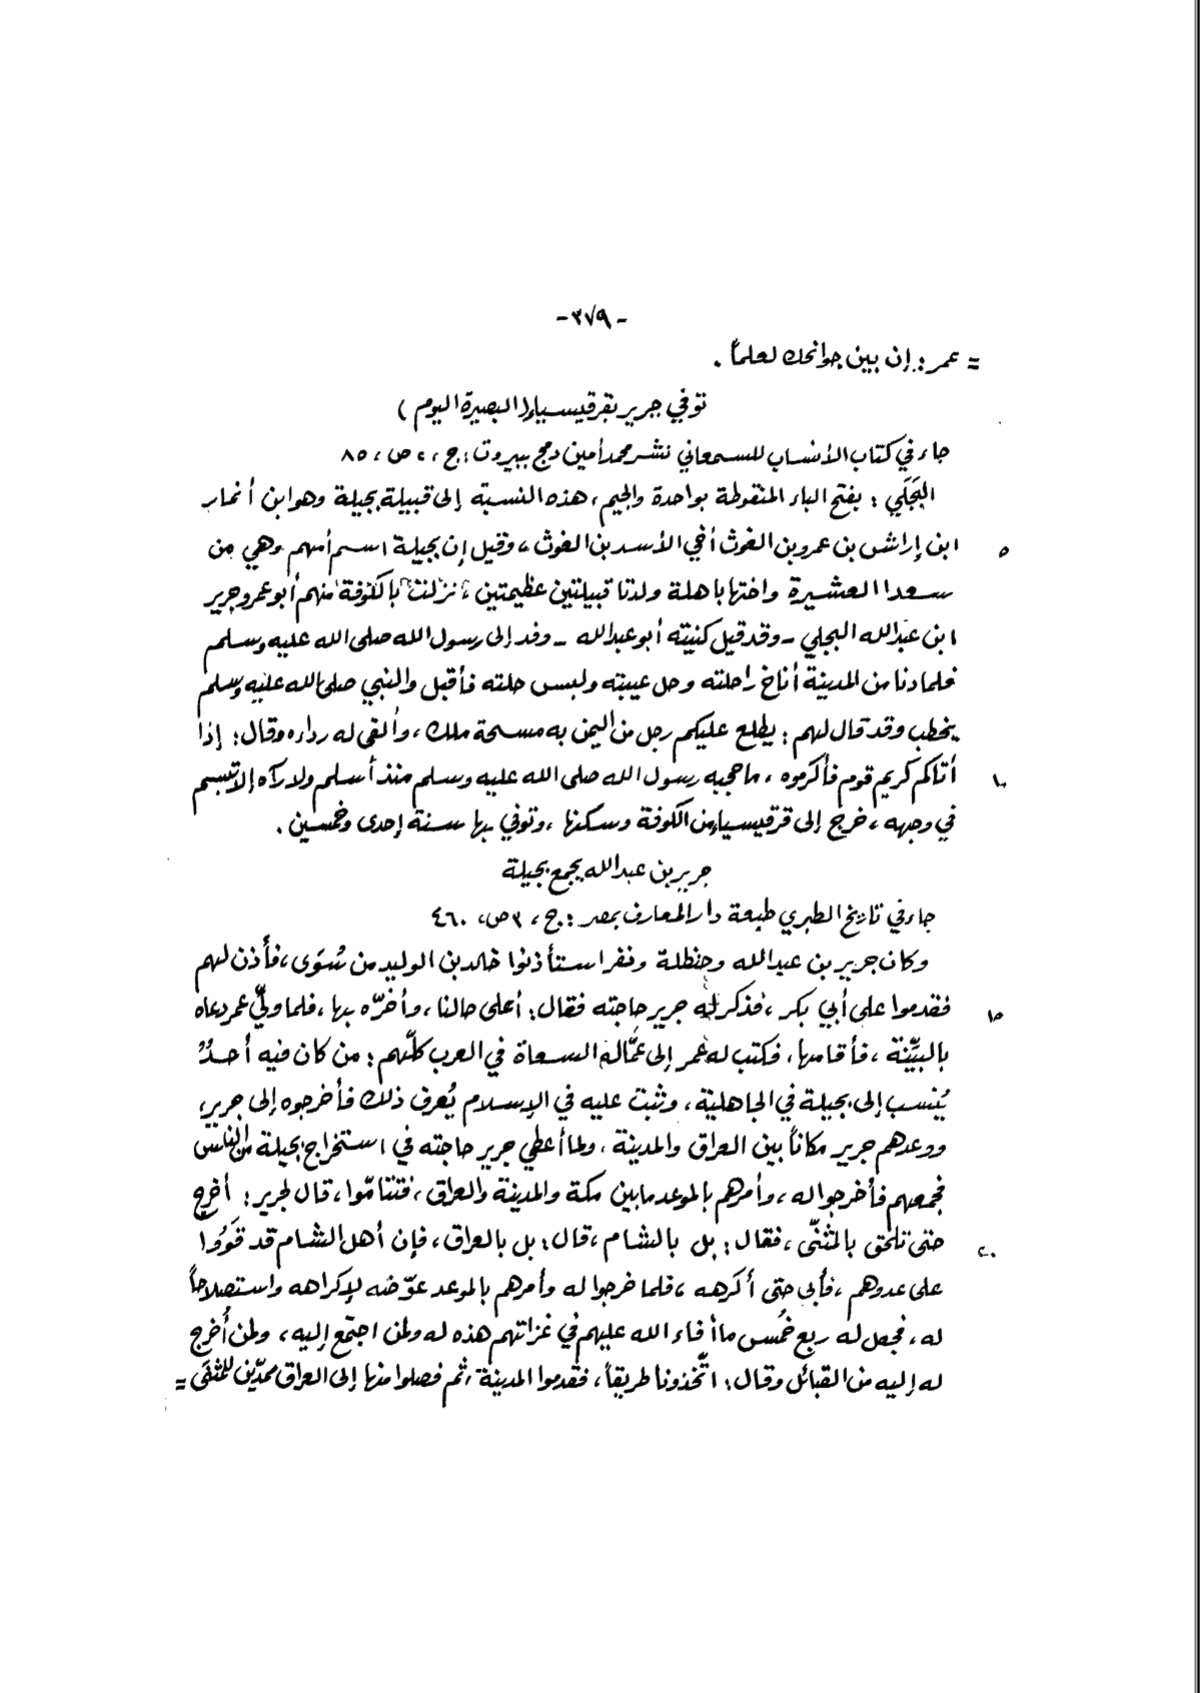 -٣٧٩-
= عمر: إن بين جوانحك لعلماً .
توفي جرير بقرقيسياء (البصيرة اليوم)
جاء في كتاب الأنساب للسمعاني نشر محمد أمين دمج ببيروت: ج، ٢ ص، ٨٥
البَجَلي: بفتح الباء المنقوطة بواحدة والجيم، هذه النسبة إلى قبيلة بجيلة وهو ابن أنمار
٥ ابن إراش بن عمرو بن الغوث أخي الأسد بن الغوث، وقيل إن بجيلة اسم أمهم وهي من
سعد العشيرة واختها باهلة ولدتا قبيلتين عظيمتين، نزلت بالكوفة منهم أبو عمرو جرير
ابن عبدالله البجلي - وقد قيل كنيته أبو عبدالله - وفد إلى رسول الله صلى الله عليه وسلم
فلما دنا من المدينة أناخ راحلته وحل عيبته ولبس حلته فأقبل والنبي صلى الله عليه وسلم
يخطب وقد قال لهم: يطلع عليكم رجل من اليمن به مسحة ملك، وألقى له رداءه وقال: إذا
١٠ أتاكم كريم قوم فأكرموه، ما حجبه رسول الله صلى الله عليه وسلم منذ أسلم ولا رآه إلا تبسم
في وجهه، خرج إلى قرقيسياء من الكوفة وسكنها، وتوفي بها سنة إحدى وخمسين .
جرير بن عبدالله يجمع بجيلة
جاء في تاريخ الطبري طبعة دار المعارف بمصر: ج، ٣ ص، ٤٦٠
وكان جرير بن عبدالله وحنظلة ونفر استأذنوا خالد بن الوليد من سُوَى، فأذن لهم
١٥ فقدموا على أبي بكر، فذكر له جرير حاجته فقال: أعلى حالنا، وأخّره بها، فلما ولّي عمر دعاه
بالبيّنة، فأقامها، فكتب له عمر إلى عمّاله السعاة في العرب كلّهم: من كان فيه أحدٌ
يُنسب إلى بجيلة في الجاهلية، وثبت عليه في الإسلام يُعرف ذلك فأخرجوه إلى جرير،
ووعدهم جرير مكاناً بين العراق والمدينة، ولما أعطي جرير حاجته في استخراج بجيلة من الناس
فجمعهم فأخرجوا له، وأمرهم بالموعد ما بين مكة والمدينة والعراق، فتتامّوا، قال لجرير: أخرج
٢٠ حتى تلحق بالمثنّى، فقال: بل بالشام، قال: بل بالعراق، فإن أهل الشام قد قَوُوا
على عدوهم، فأبى حتى أكرهه، فلما خرجوا له وأمرهم بالموعد عوّضه لإكراهه واستصلاحاً
له، فجعل له ربع خُمس ما أفاء الله عليهم في غزاتهم هذه له ولمن اجتمع إليه، ولمن أُخرج
له إليه من القبائل وقال: اتّخذونا طريقاً، فقدموا المدينة، ثم فصلوا منها إلى العراق ممدّين للمثنى =